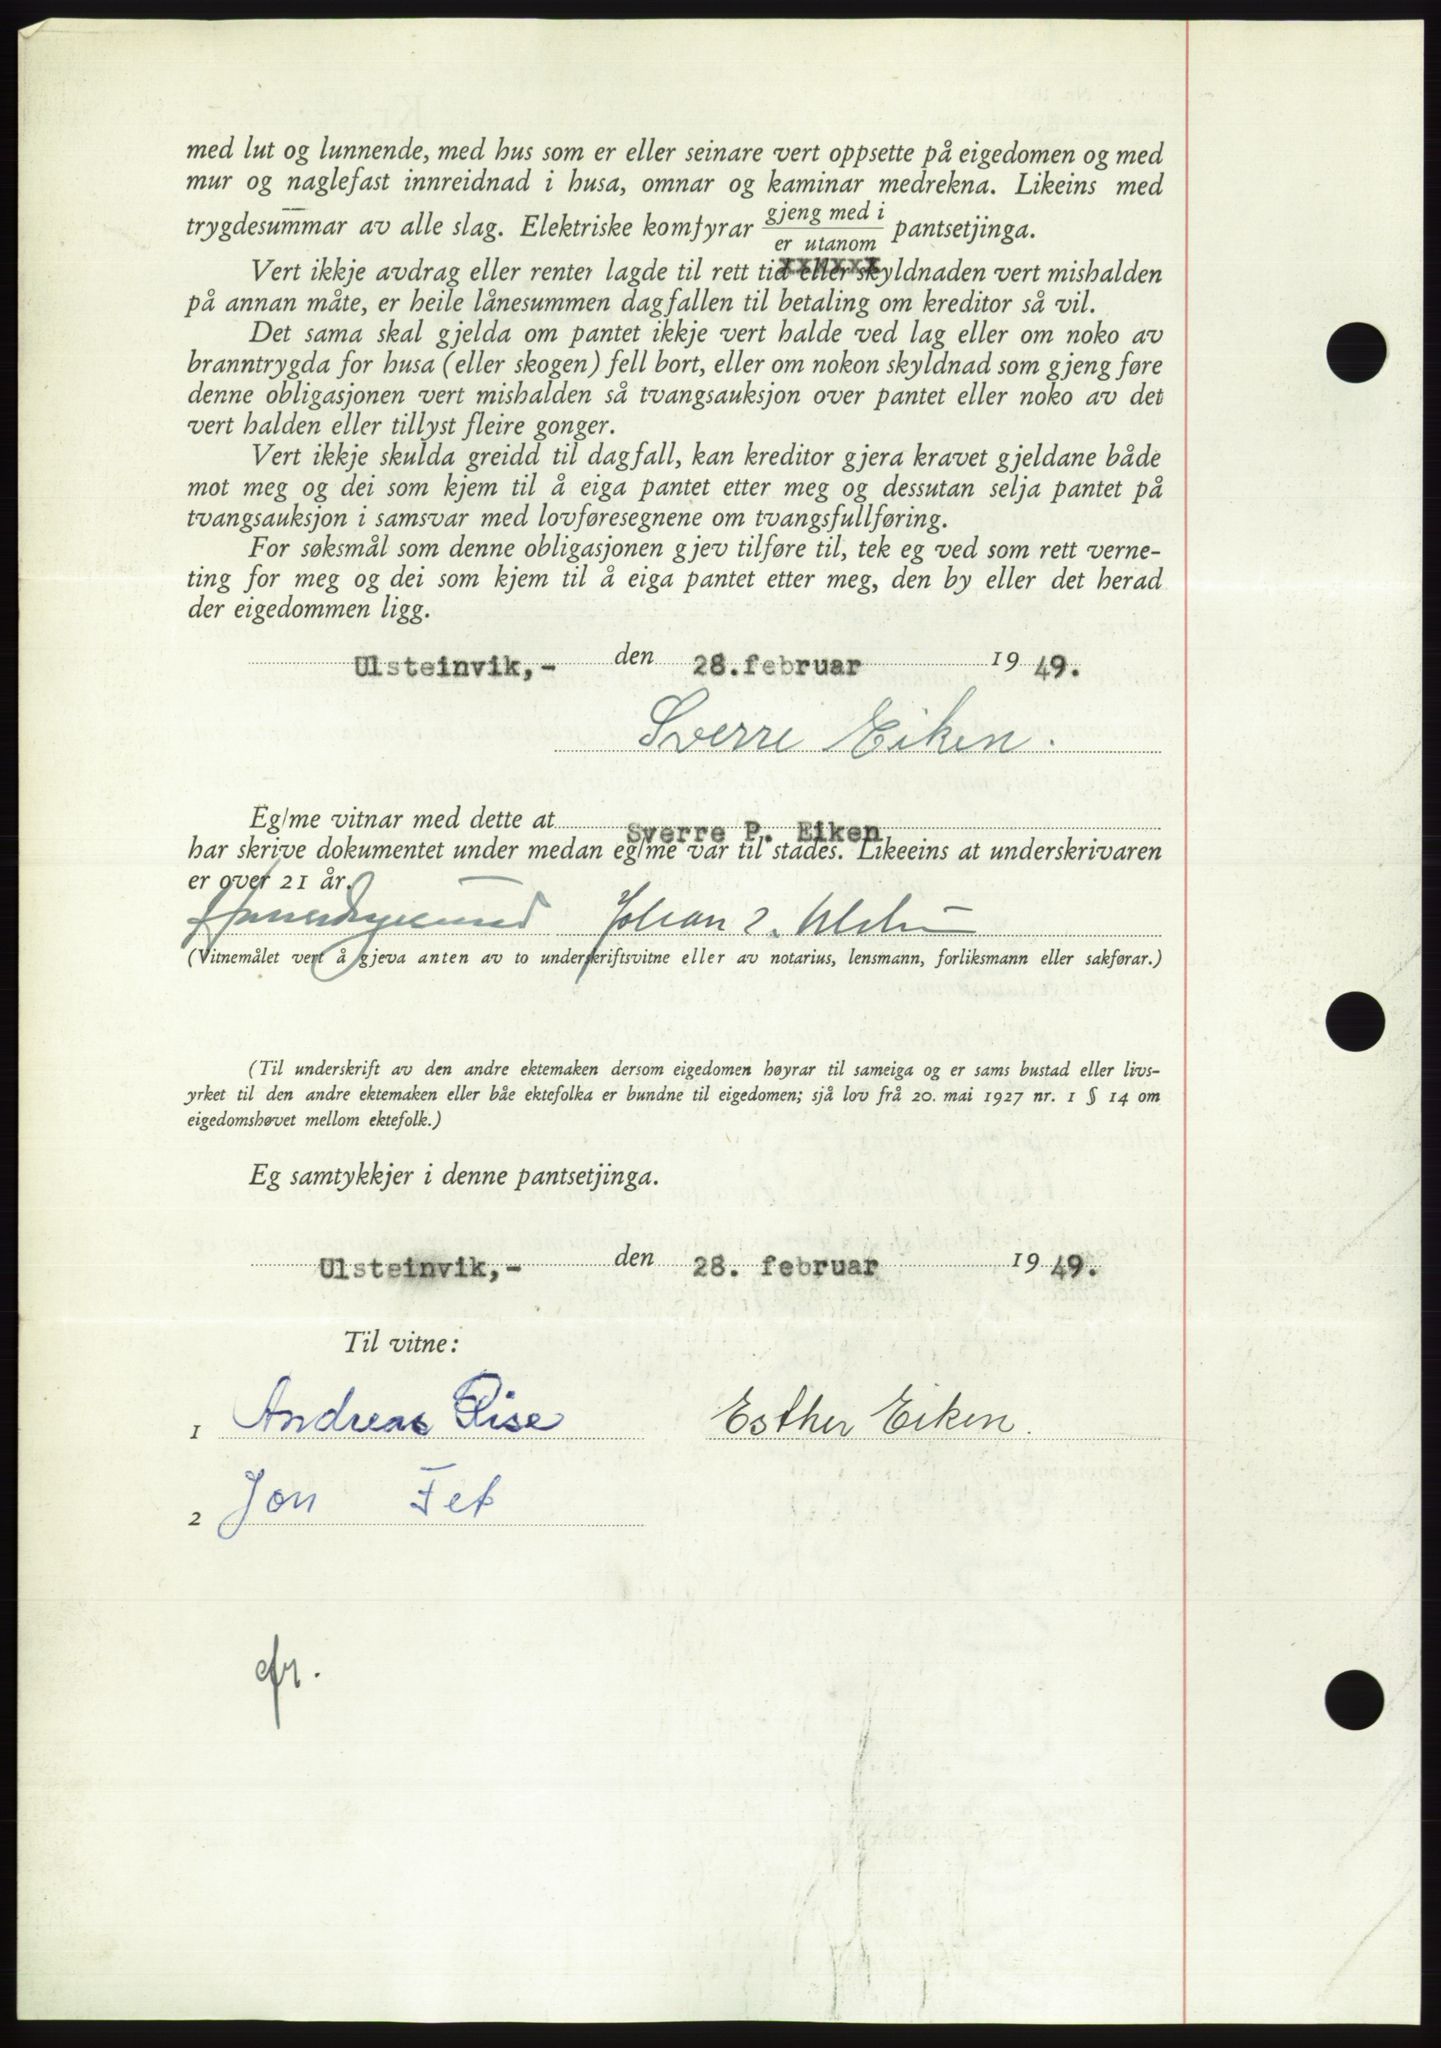 med lut og lunnende, med hus som er eller seinare vert oppsette på eigedomen og med
mur og naglefast innreidnad i husa, omnar og kaminar medrekna. Likeins med
trygdesummar av alle slag. Elektriske komfyrar gjeng med i / er utanom pantsetjinga.
xxMxxx
Vert ikkje avdrag eller renter lagde til rett tid eller skyldnaden vert mishalden
på annan måte, er heile lånesummen dagfallen til betaling om kreditor så vil.
Det sama skal gjelda om pantet ikkje vert halde ved lag eller om noko av
branntrygda for husa (eller skogen) fell bort, eller om nokon skyldnad som gjeng føre
denne obligasjonen vert mishalden så tvangsauksjon over pantet eller noko av det
vert halden eller tillyst fleire gonger.
Vert ikkje skulda greidd til dagfall, kan kreditor gjera kravet gjeldane både
mot meg og dei som kjem til å eiga pantet etter meg og dessutan selja pantet på
tvangsauksjon i samsvar med lovføresegnene om tvangsfullføring.
For søksmål som denne obligasjonen gjev tilføre til, tek eg ved som rett verne-
ting for meg og dei som kjem til å eiga pantet etter meg, den by eller det herad
der eigedommen ligg.
Ulsteinvik,- den 28.februar 19 49.
Sverre Eiken.
Eg/me vitnar med dette at Sverre P. Eiken
har skrive dokumentet under medan eg/me var til stades. Likeeins at underskrivaren
er over 21 år.
Johan
(Vitnemålet vert å gjeva anten av to underskriftsvitne eller av notarius, lensmann, forliksmann eller sakførar.)
(Til underskrift av den andre ektemaken dersom eigedomen høyrar til sameiga og er sams bustad eller livs-
yrket til den andre ektemaken eller båe ektefolka er bundne til eigedomen; sjå lov frå 20. mai 1927 nr. 1 § 14 om
eigedomshøvet mellom ektefolk.)
Eg samtykkjer i denne pantsetjinga.
Ulsteinvik,- den 28. februar 19 49.
Til vitne:
1 Andreas Rise Esther Eiken.
2 Jon Fet